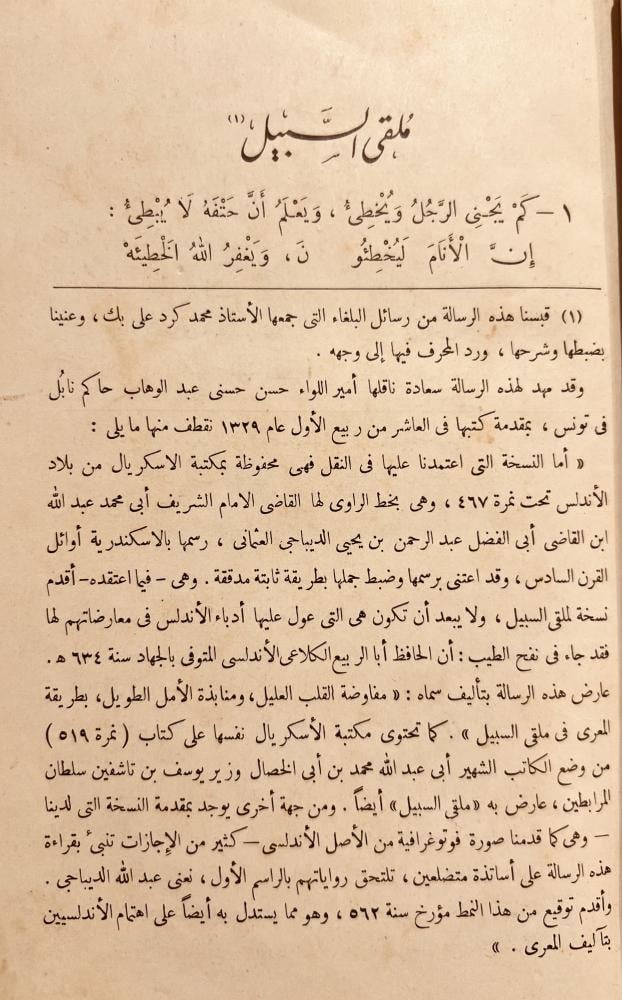 مُلقى السَّبيل (١)
١ – كَمْ يَجْنِي الرَّجُلُ وَيُخْطِئُ ، وَيَعْلَمُ أَنَّ حَتْفَهُ لَا يُبْطِئُ :
إِنَّ الْأَنَامَ لَيُخْطِئُو نَ ، وَيَغْفِرُ اللهُ الْخَطِيئَهْ
(١) قبسنا هذه الرسالة من رسائل البلغاء التى جمعها الأستاذ محمد كرد على بك ، وعنينا
بضبطها وشرحها ، ورد المحرف فيها إلى وجهه .
وقد مهد لهذه الرسالة سعادة ناقلها أمير اللواء حسن حسنى عبد الوهاب حاكم نابُل
فى تونس ، بمقدمة كتبها فى العاشر من ربيع الأول عام ١٣٢٩ نقطف منها ما يلى :
« أما النسخة التى اعتمدنا عليها فى النقل فهى محفوظة بمكتبة الاسكريال من بلاد
الأندلس تحت نمرة ٤٦٧ ، وهى بخط الراوى لها القاضى الامام الشريف أبى محمد عبد الله
ابن القاضى أبى الفضل عبد الرحمن بن يحيى الديباجى العثمانى ، رسمها بالاسكندرية أوائل
القرن السادس ، وقد اعتنى برسمها وضبط جملها بطريقة ثابتة مدققة . وهى – فيما اعتقده – أقدم
نسخة لملقى السبيل ، ولا يبعد أن تكون هى التى عول عليها أدباء الأندلس فى معارضاتهم لها
فقد جاء فى نفح الطيب : أن الحافظ أبا الربيع الكلاعى الأندلسى المتوفى بالجهاد سنة ٦٣٤ ه .
عارض هذه الرسالة بتأليف سماه : « مفاوضة القلب العليل ، ومنابذة الأمل الطويل ، بطريقة
المعرى فى ملقى السبيل » . كما تحتوى مكتبة الأسكريال نفسها على كتاب ( نمرة ٥١٩ )
من وضع الكاتب الشهير أبى عبد الله محمد بن أبى الخصال وزير يوسف بن تاشفين سلطان
المرابطين ، عارض به «ملقى السبيل» أيضاً . ومن جهة أخرى يوجد بمقدمة النسخة التى لدينا
– وهى كما قدمنا صورة فوتوغرافية من الأصل الأندلسى – كثير من الإجازات تنبئ بقراءة
هذه الرسالة على أساتذة متضلعين ، تلتحق رواياتهم بالراسم الأول ، نعنى عبد الله الديباجى .
وأقدم توقيع من هذا النمط مؤرخ سنة ٥٦٢ ، وهو مما يستدل به أيضاً على اهتمام الأندلسيين
بتآليف المعرى . »